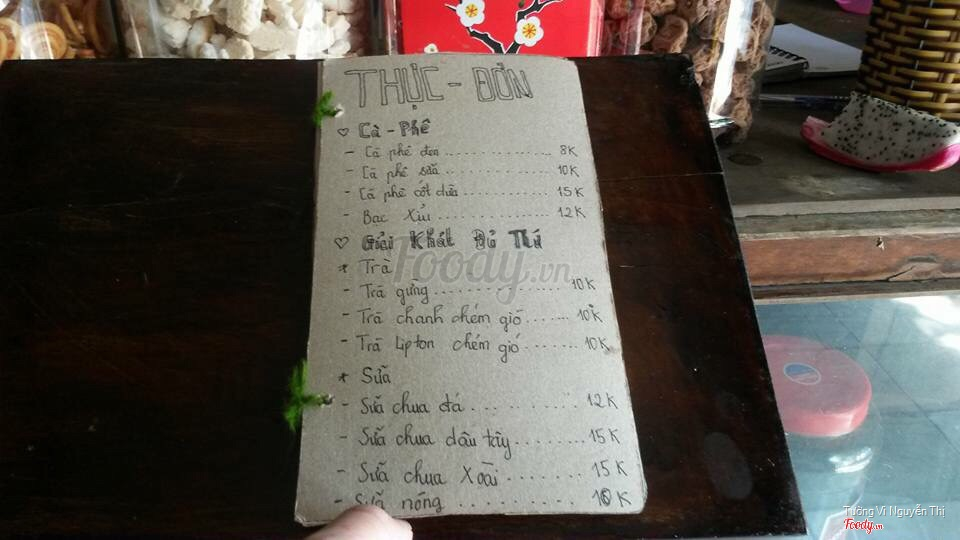 THỰC - ĐƠN
♡ Cà - Phê
- Cà phê đen ................. 8K
- Cà phê sữa ................ 10K
- Cà phê cốt dừa ............... 15K
- Bạc Xỉu ................ 12K
♡ Giải Khát Đủ Thứ
* Trà
- Trà gừng .................. 10K
- Trà chanh chém gió ....... 10K
- Trà Lipton chém gió ........ 10K
* Sữa
- Sữa chua đá ............. 12K
- Sữa chua dâu tây ........ 15K
- Sữa chua Xoài ......... 15K
- Sữa nóng ............. 10K
Foody.vn
Tường Vi Nguyễn Thị
Foody.vn